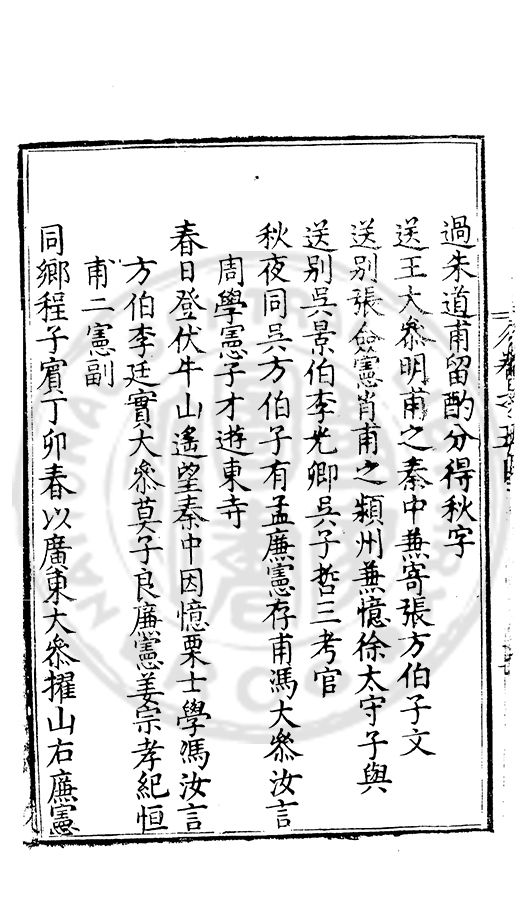 過朱道甫留酌分得秋字
送王大叅明甫之秦中兼寄張方伯子文
送别張僉憲肖甫之潁州兼憶徐太守子與
送别吳景伯李光卿吳子哲三考官
秋夜同吳方伯子有孟廉憲存甫馮大叅汝言
周學憲子才遊東寺
春日登伏牛山遙望秦中因憶栗士學馮汝言
方伯李廷實大叅莫子良廉憲姜宗孝紀恒
甫二憲副
同鄉程子賓丁卯春以廣東大叅擢山右廉憲